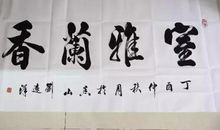 室雅蘭香
丁酉仲秋月於泰山劉遠洋